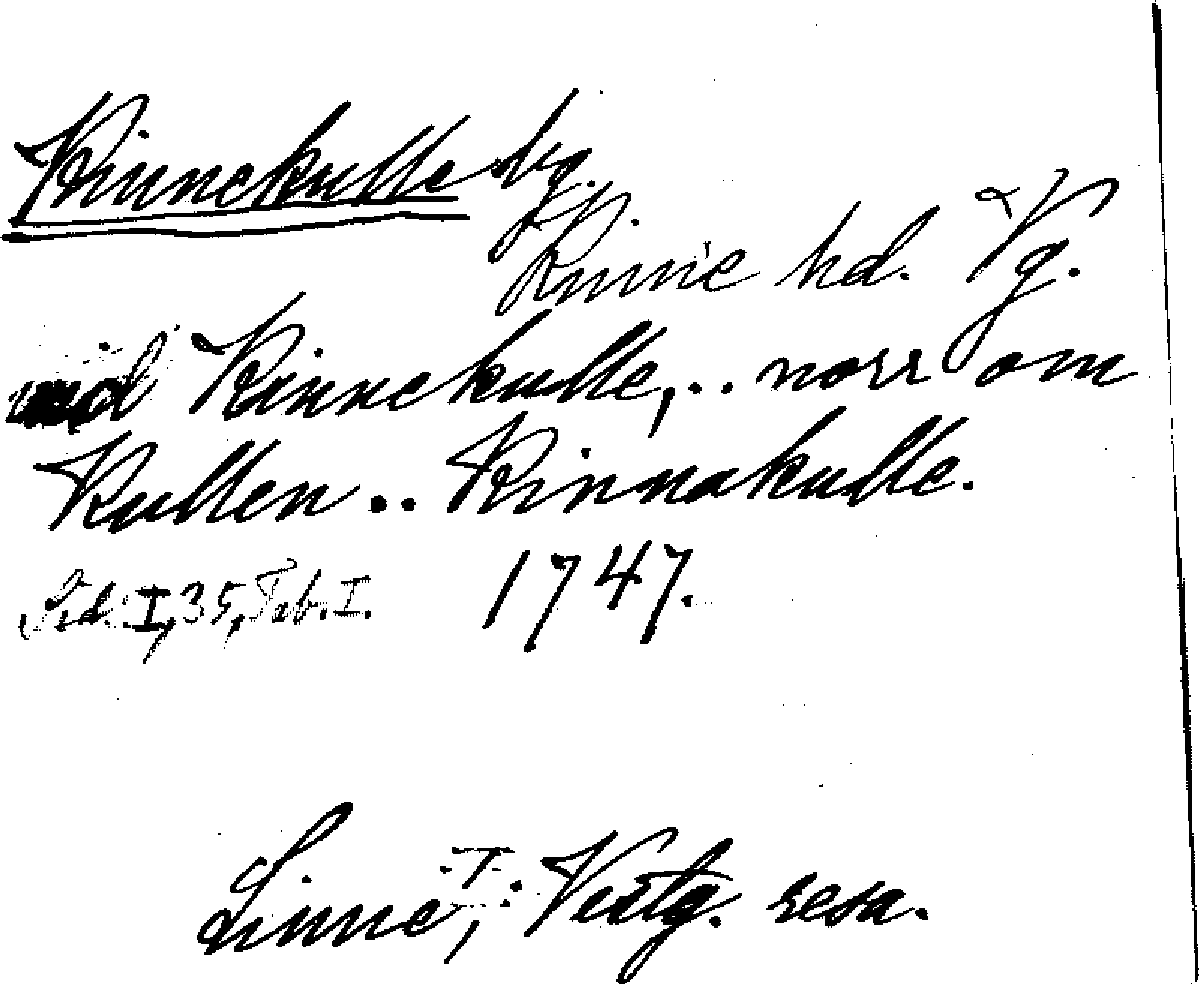 Kinnekulle bg.
Kinne hd. Vg.
vid Kinnekulle,.. norr om
Kullen .. Kinnakulle.
Sid. I, 35, Tab. I. 1747.
Linné, Vestg. resa.